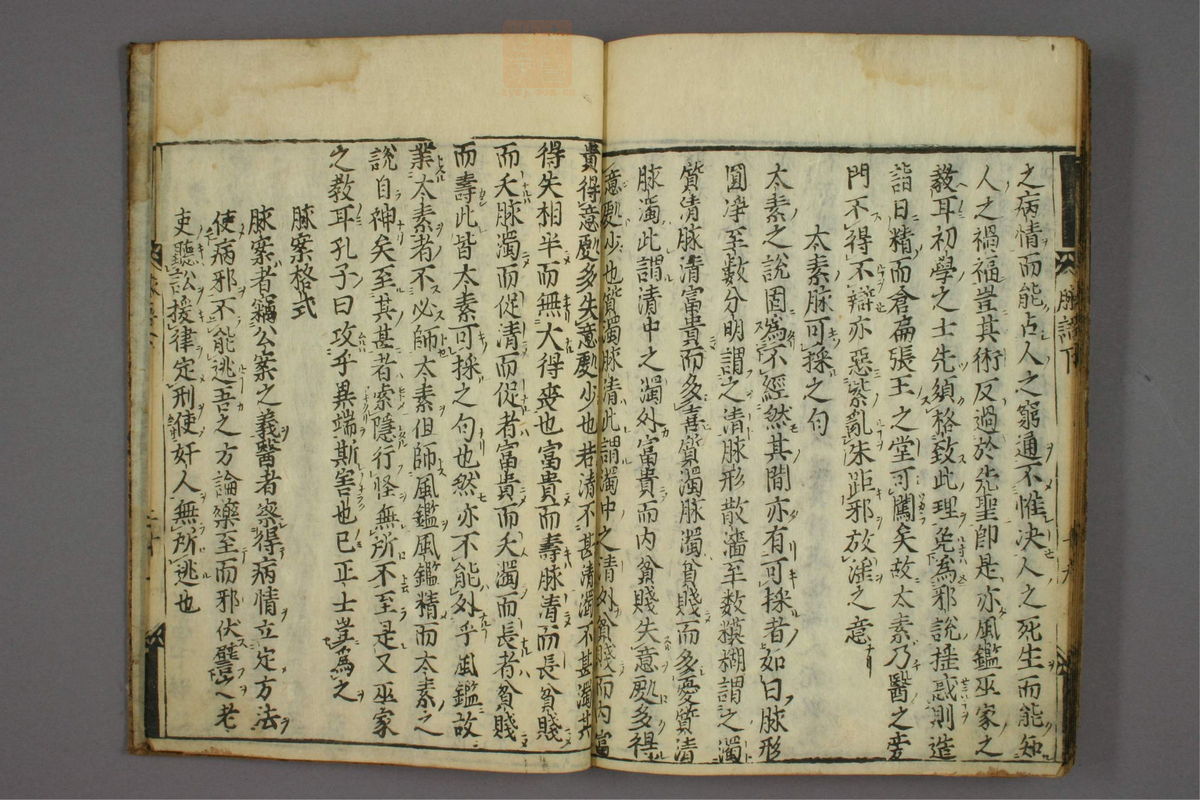 之病情而能占人之窮通不惟決人之死生而能知
人之禍福豈其術反過於先聖即是亦風鑑巫家之
教耳初學之士先須格致此理免為邪說摇惑則造
詣日精而倉扁張王之堂可闖矣故太素乃醫之旁
門不得不辯亦惡紫亂朱距邪放淫之意
太素脉可採之句
太素之說固為不經然其間亦有可採者如曰脉形
圓淨至數分明謂之清脉形散濇至数模糊謂之濁
質清脉清富貴而多喜質濁脉濁貧賤而多憂質清
脉濁此謂清中之濁外富貴而内貧賤失意處多得
意處少也質濁脉清此謂濁中之清外貧賤而内富
貴得意處多失意處少也若清不甚清濁不甚濁其
得失相半而無大得喪也富貴而壽脉清而長貧賤
而夭脉濁而促清而促者富貴而夭濁而長者貧賤
而壽此皆太素可採之句也然亦不能外乎風鑑故
業太素者不必師太素但師風鑑風鑑精而太素之
說自神矣至其甚者索隱行怪無所不至是又巫家
之教耳孔子曰攻乎異端斯害也已正士豈為之
脉案格式
脉案者竊公案之義醫者察得病情立定方法
使病邪不能逃吾之方論藥至而邪伏譬之老
吏聽訟援律定刑使奸人無所逃也